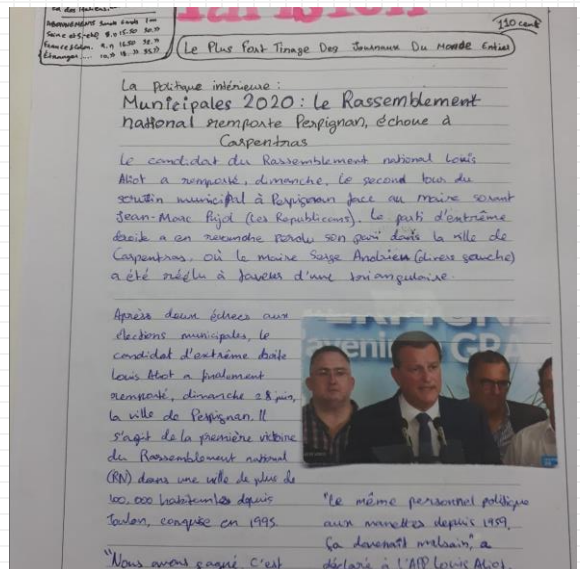 Bd des Italiens.
ABONNEMENTS 3 mois 6 mois 1 an
Seine et S.
France
Étranger
Parisien
110 cent
Le Plus Fort Tirage Des Journaux Du Monde Entier
La Politique intérieure :
Municipales 2020 : le Rassemblement
national remporte Perpignan, échoue à
Carpentras
Le candidat du Rassemblement national Louis
Aliot a remporté, dimanche, le second tour du
scrutin municipal à Perpignan face au maire sortant
Jean-Marc Pujol (Les Republicans). Le parti d'extrême
droite a en revanche perdu son pari dans la ville de
Carpentras, où le maire Serge Andrieu (divers gauche)
a été réélu à faveur d'une triangulaire.
Après deux échecs aux
élections municipales, le
candidat d'extrême droite
Louis Aliot a finalement
remporté, dimanche 28 juin,
la ville de Perpignan. Il
s'agit de la première victoire
du Rassemblement national
(RN) dans une ville de plus de
100,000 habitants depuis
Toulon, conquise en 1995.
"Nous avons gagné. C'est
avenir GRA
"le même personnel politique
aux manettes depuis 1959,
Ça devenait malsain", a
déclaré à l'AFP Louis Aliot.